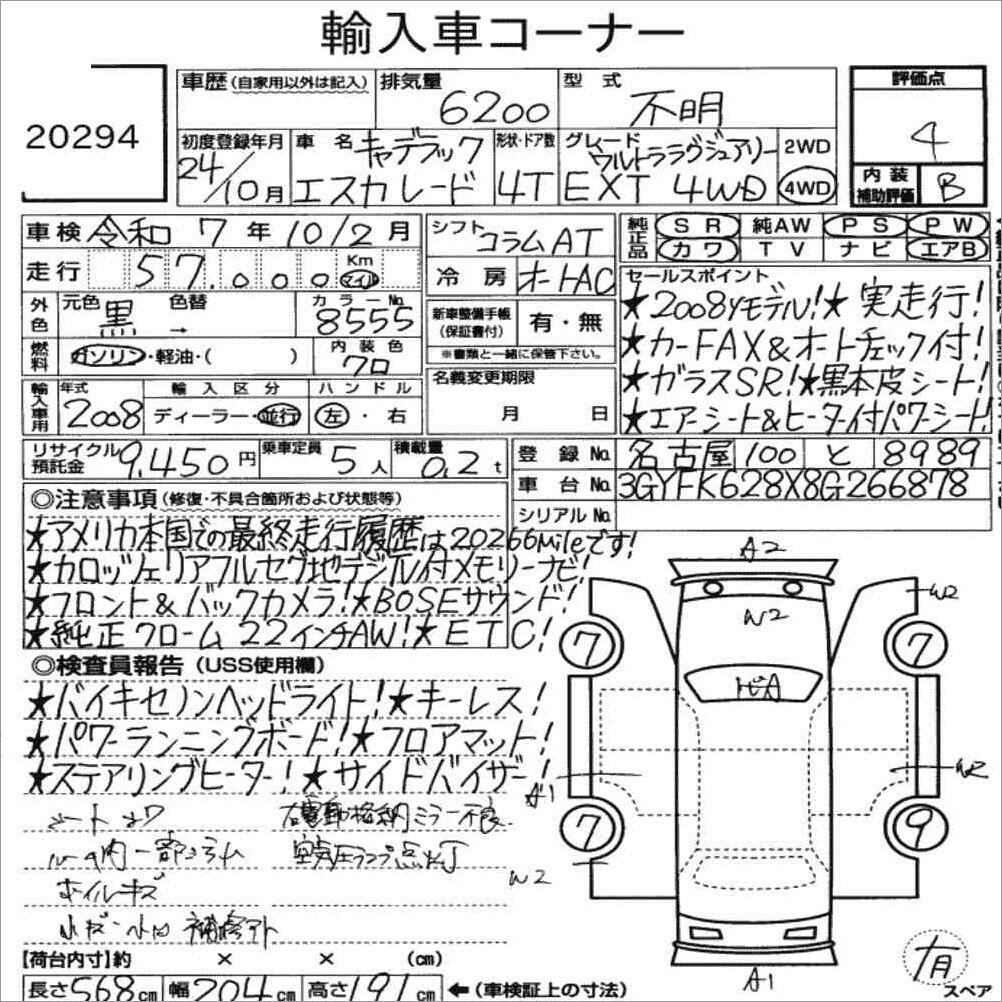 輸入車コーナー
20294
車歴 (自家用以外は記入)
排気量 6200
型式 不明
評価点 4
初度登録年月 24/10月
車名 キャデラック エスカレード
形状・ドア数 4T
グレード ウルトララグジュアリー EXT 4WD
2WD
4WD
内装補助評価 B
車検 令和 7年10/2月
走行 57,000 Km マイル
外色 元色 黒 色替 → カラーNo. 8555
燃料 ガソリン・軽油・( )
内装色 クロ
輸入車用 年式 2008
輸入区分 ディーラー・並行
ハンドル 左・右
シフト コラムAT
冷房 オートAC
新車整備手帳(保証書付) 有・無
※書類と一緒に保管下さい。
名義変更期限 月 日
純正品 SR 純AW PS PW
カワ TV ナビ エアB
セールスポイント
★2008yモデル!★実走行!
★カーFAX&オートチェック付!
★ガラスSR!★黒本皮シート!
★エアーシート&ヒーター付パワーシート!
リサイクル預託金 9,450円
乗車定員 5人
積載量 0.2t
登録No. 名古屋 100 と 8989
車台No. 3GYFK628X8G266878
シリアルNo.
◎注意事項(修復・不具合箇所および状態等)
★アメリカ本国での最終走行履歴は20266Mileです!
★カロッツェリアフルセグ地デジTV付メモリーナビ!
★フロント&バックカメラ!★BOSEサウンド!
★純正クローム22インチAW!★ETC!
◎検査員報告(USS使用欄)
★バイキセノンヘッドライト!★キーレス!
★パワーランニングボード!★フロアマット!
★ステアリングヒーター!★サイドバイザー!
右電動格納ミラー不良
空気圧ランプ点灯
ホイルキズ
小キズ・小凹 補修アト
A2
W2
W2
7
7
W2
A1
7
9
W2
A1
有
スペア
【荷台内寸】約 × × (cm)
長さ568cm 幅204cm 高さ191cm ←(車検証上の寸法)